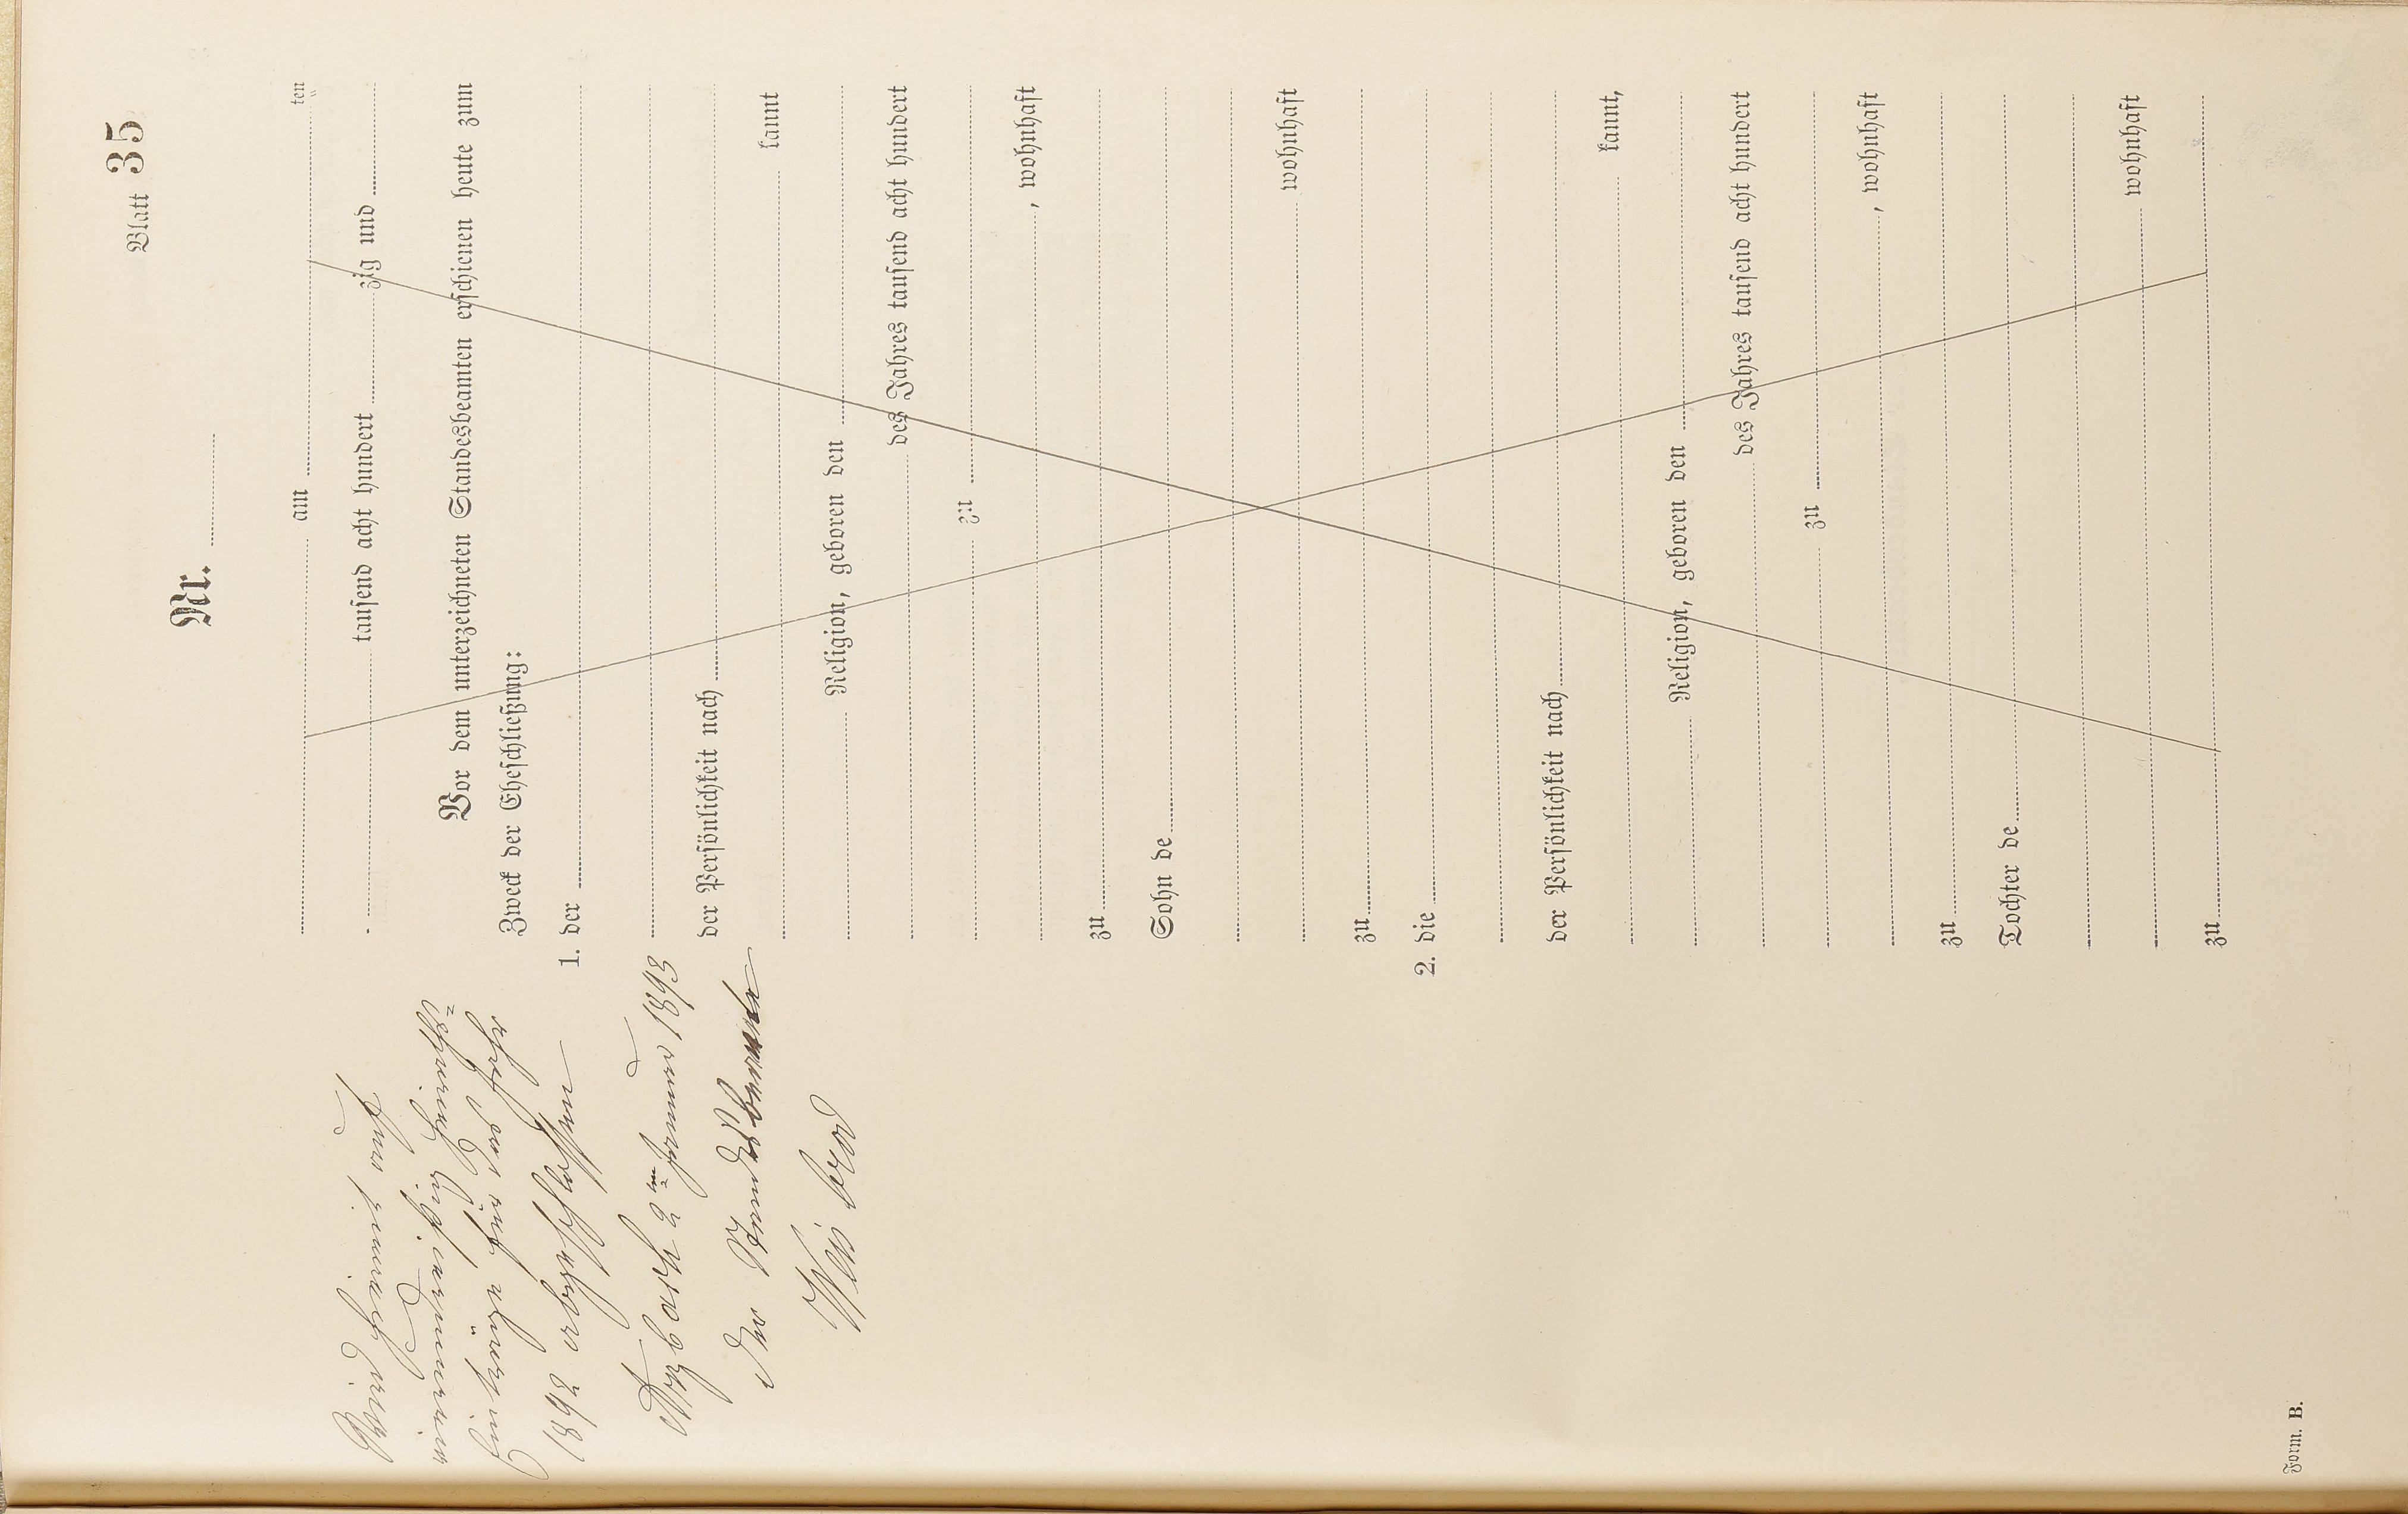 Blatt 35
Nr.
am ten
tausend acht hundert zig und
Vor dem unterzeichneten Standesbeamten erschienen heute zum
Zweck der Eheschließung:
1. der
der Persönlichkeit nach
kannt
Religion, geboren den
des Jahres tausend acht hundert
zu
, wohnhaft
zu
Sohn de
wohnhaft
zu
2. die
der Persönlichkeit nach
kannt,
Religion, geboren den
des Jahres tausend acht hundert
zu
, wohnhaft
zu
Tochter de
wohnhaft
zu
Wird hiermit
das Jahr
1892 abgeschlossen
Atzbach 2ten Januar 1893
Der Standesbeamte
Weisbrod
Form. B.